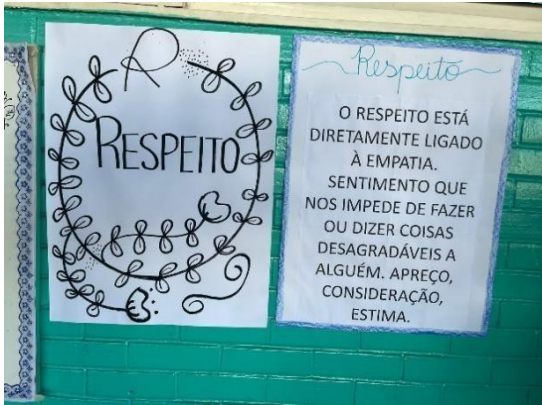 R
RESPEITO
Respeito
O RESPEITO ESTÁ
DIRETAMENTE LIGADO
À EMPATIA.
SENTIMENTO QUE
NOS IMPEDE DE FAZER
OU DIZER COISAS
DESAGRADÁVEIS A
ALGUÉM. APREÇO,
CONSIDERAÇÃO,
ESTIMA.